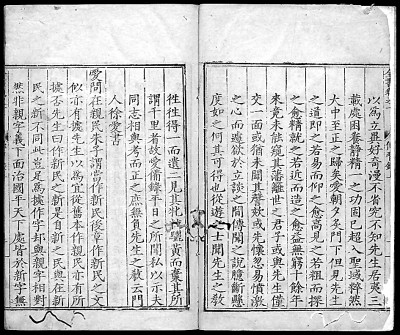 以為立異好奇漫不省究不知先生居夷三
載處困養靜精一之功固已超入聖域粹然
大中至正之歸矣愛朝夕炙門下但見先生
之道即之若易而仰之愈高見之若粗而探
之愈精就之若近而造之愈益無窮十餘年
來竟未能窺其藩籬世之君子或與先生僅
交一面或猶未聞其謦欬或先懷忽易憤激
之心而遽欲於立談之間傳聞之說臆斷懸
度如之何其可得也從遊之士聞先生之教
往往得一而遺二見其牝牡驪黃而棄其所
謂千里者故愛備錄平日之所聞私以示夫
同志相與考而正之庶無負先生之教云門
人徐愛書
愛問在親民朱子謂當作新民後章作新民之文
似亦有據先生以為宜從舊本作親民亦有所
據否先生曰作新民之新是自新之民與在新
民之新不同此豈足為據作字却與親字相對
然非親字義下面治國平天下處皆於新字無